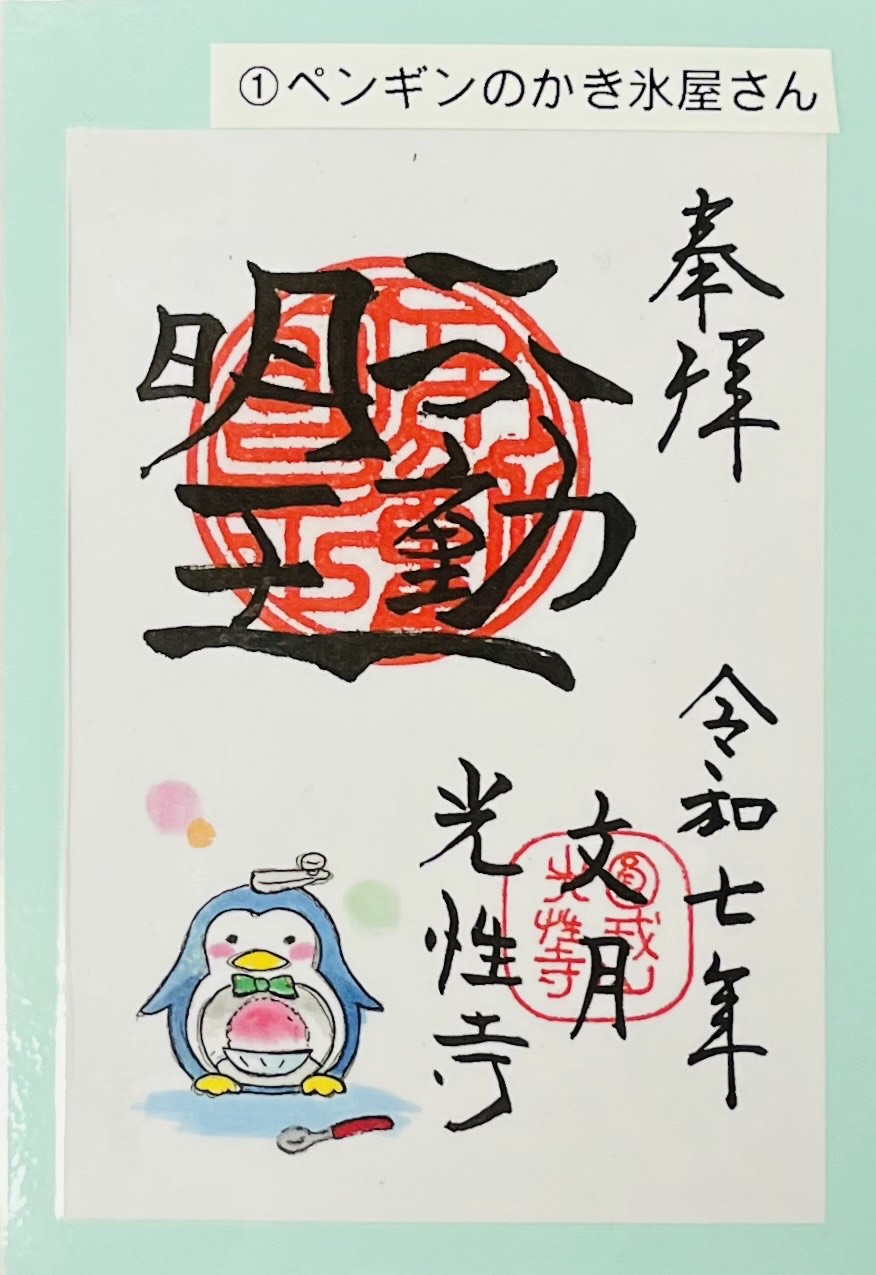 ①ペンギンのかき氷屋さん
奉拝
不動
明王
令和七年
文月
光性寺
光性寺